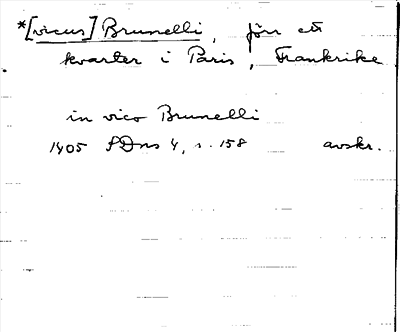 *[vicus] Brunelli, förr ett
kvarter i Paris, Frankrike
in vico Brunelli
1405 SDns 4, s. 158 avskr.